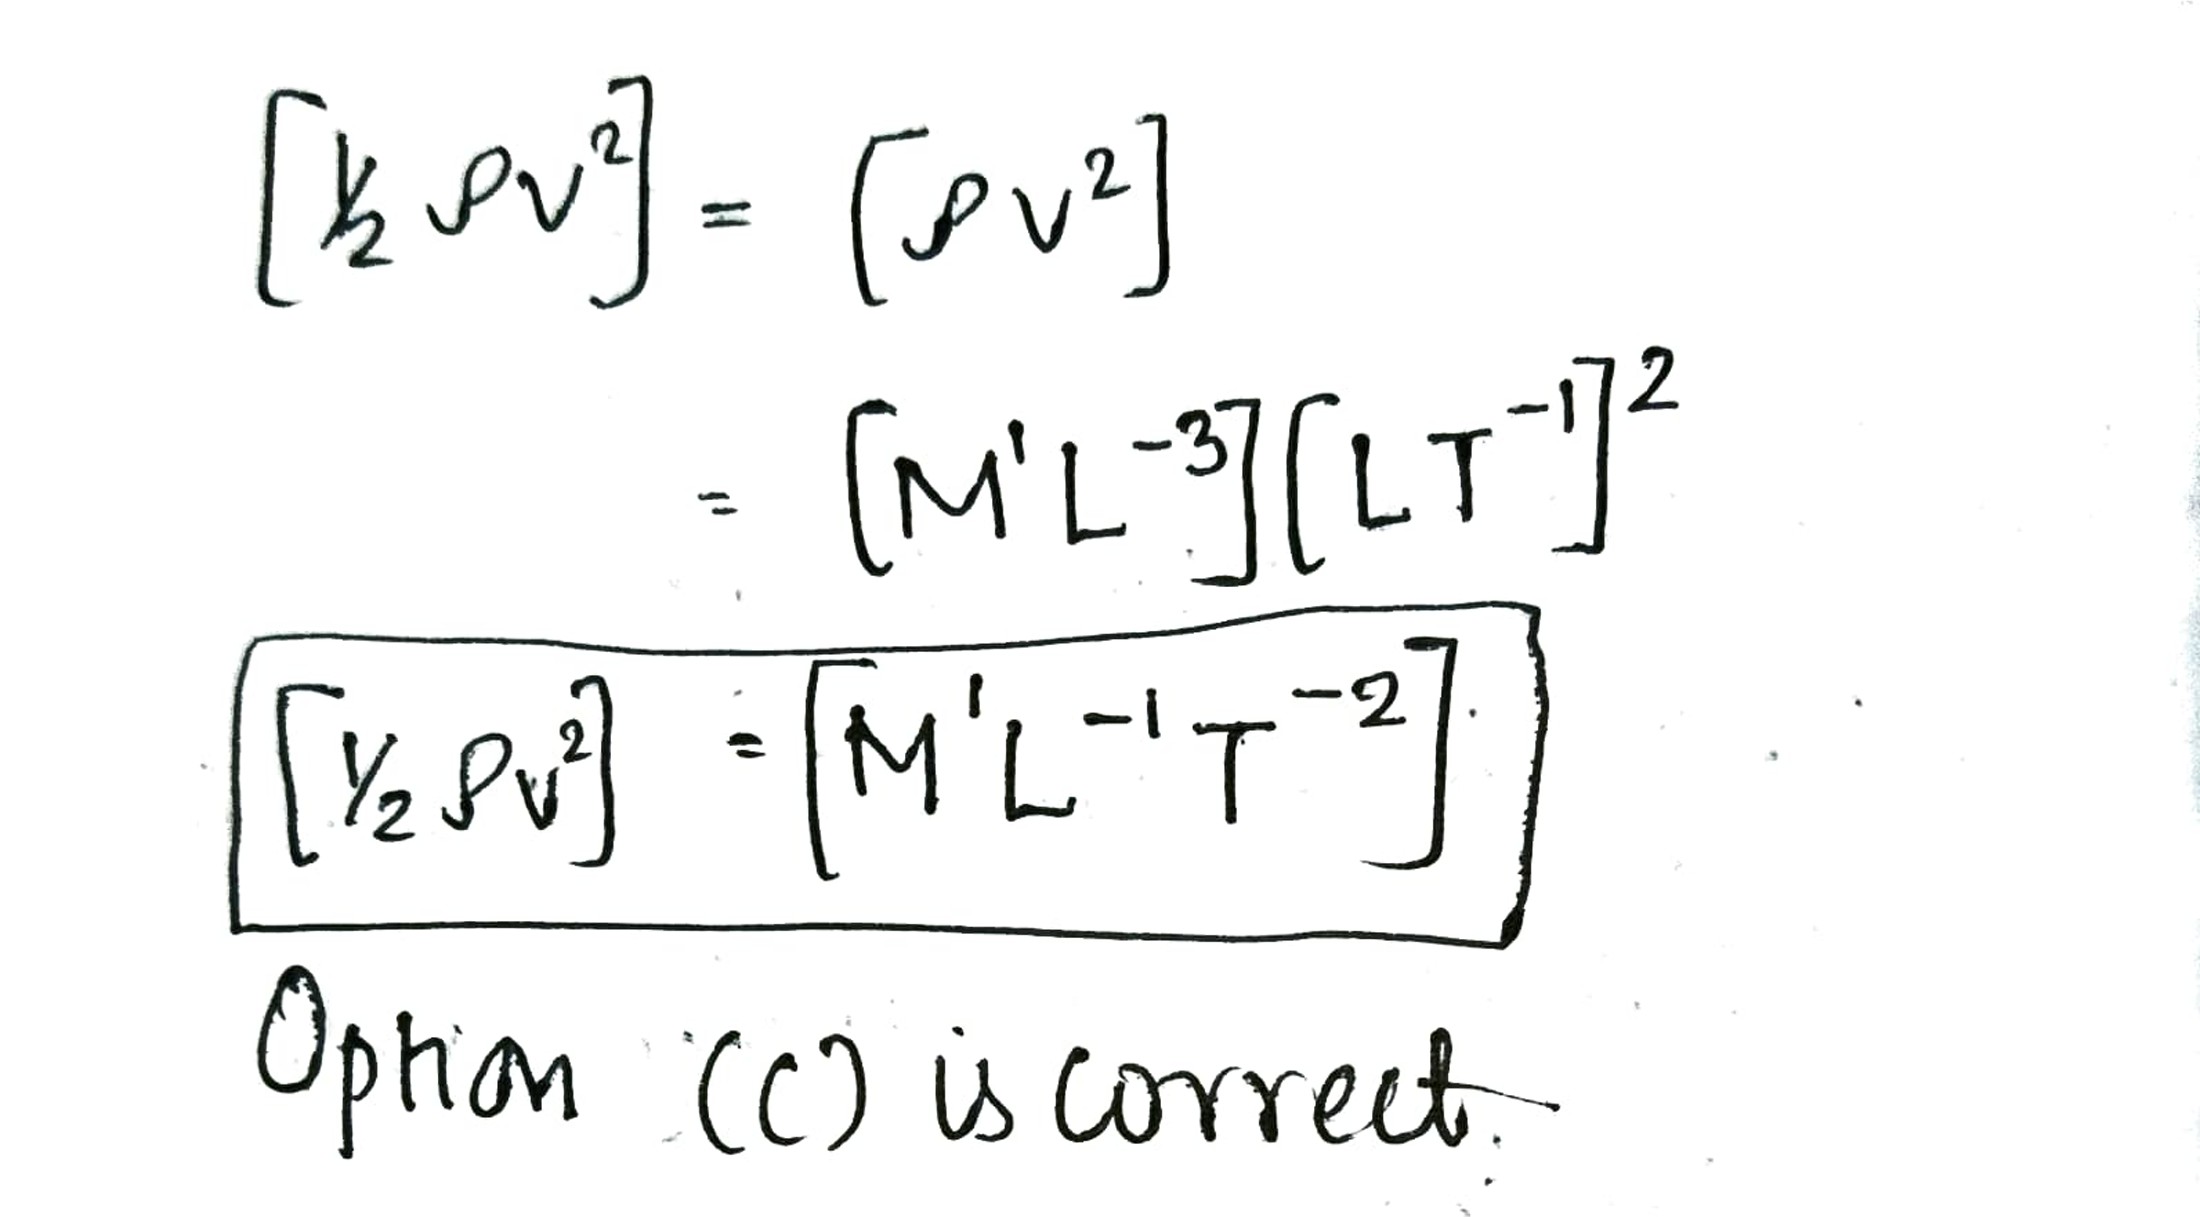 [½ ρv²] = [ρv²]
= [M¹L⁻³][LT⁻¹]²
[½ ρv²] = [M¹L⁻¹T⁻²]
Option (C) is correct.